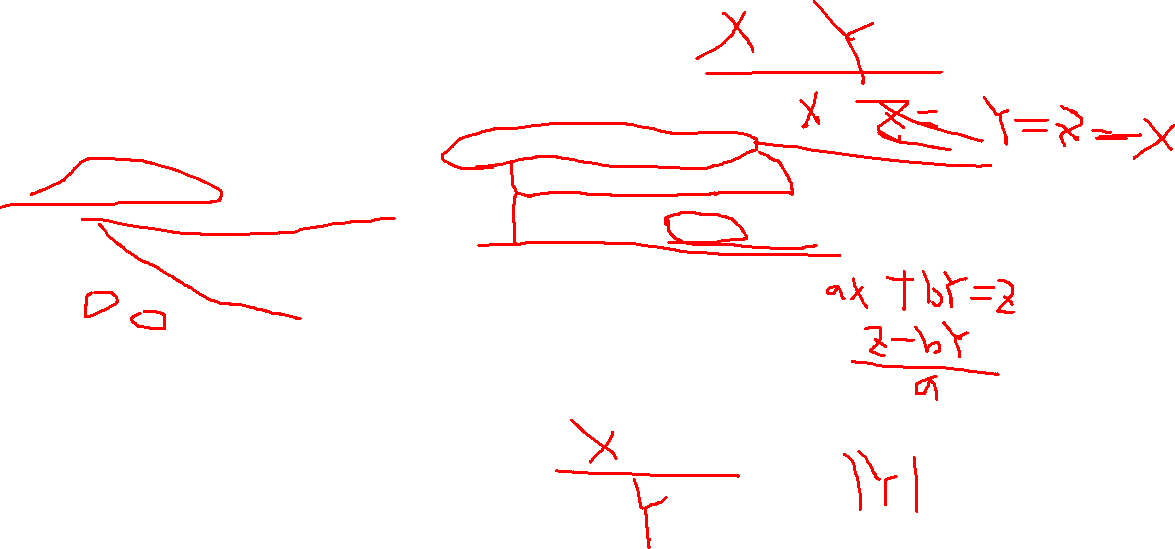 X Y
X Z= Y=Z=-X
ax+bY=Z
Z-bY
a
X
Y
|Y|